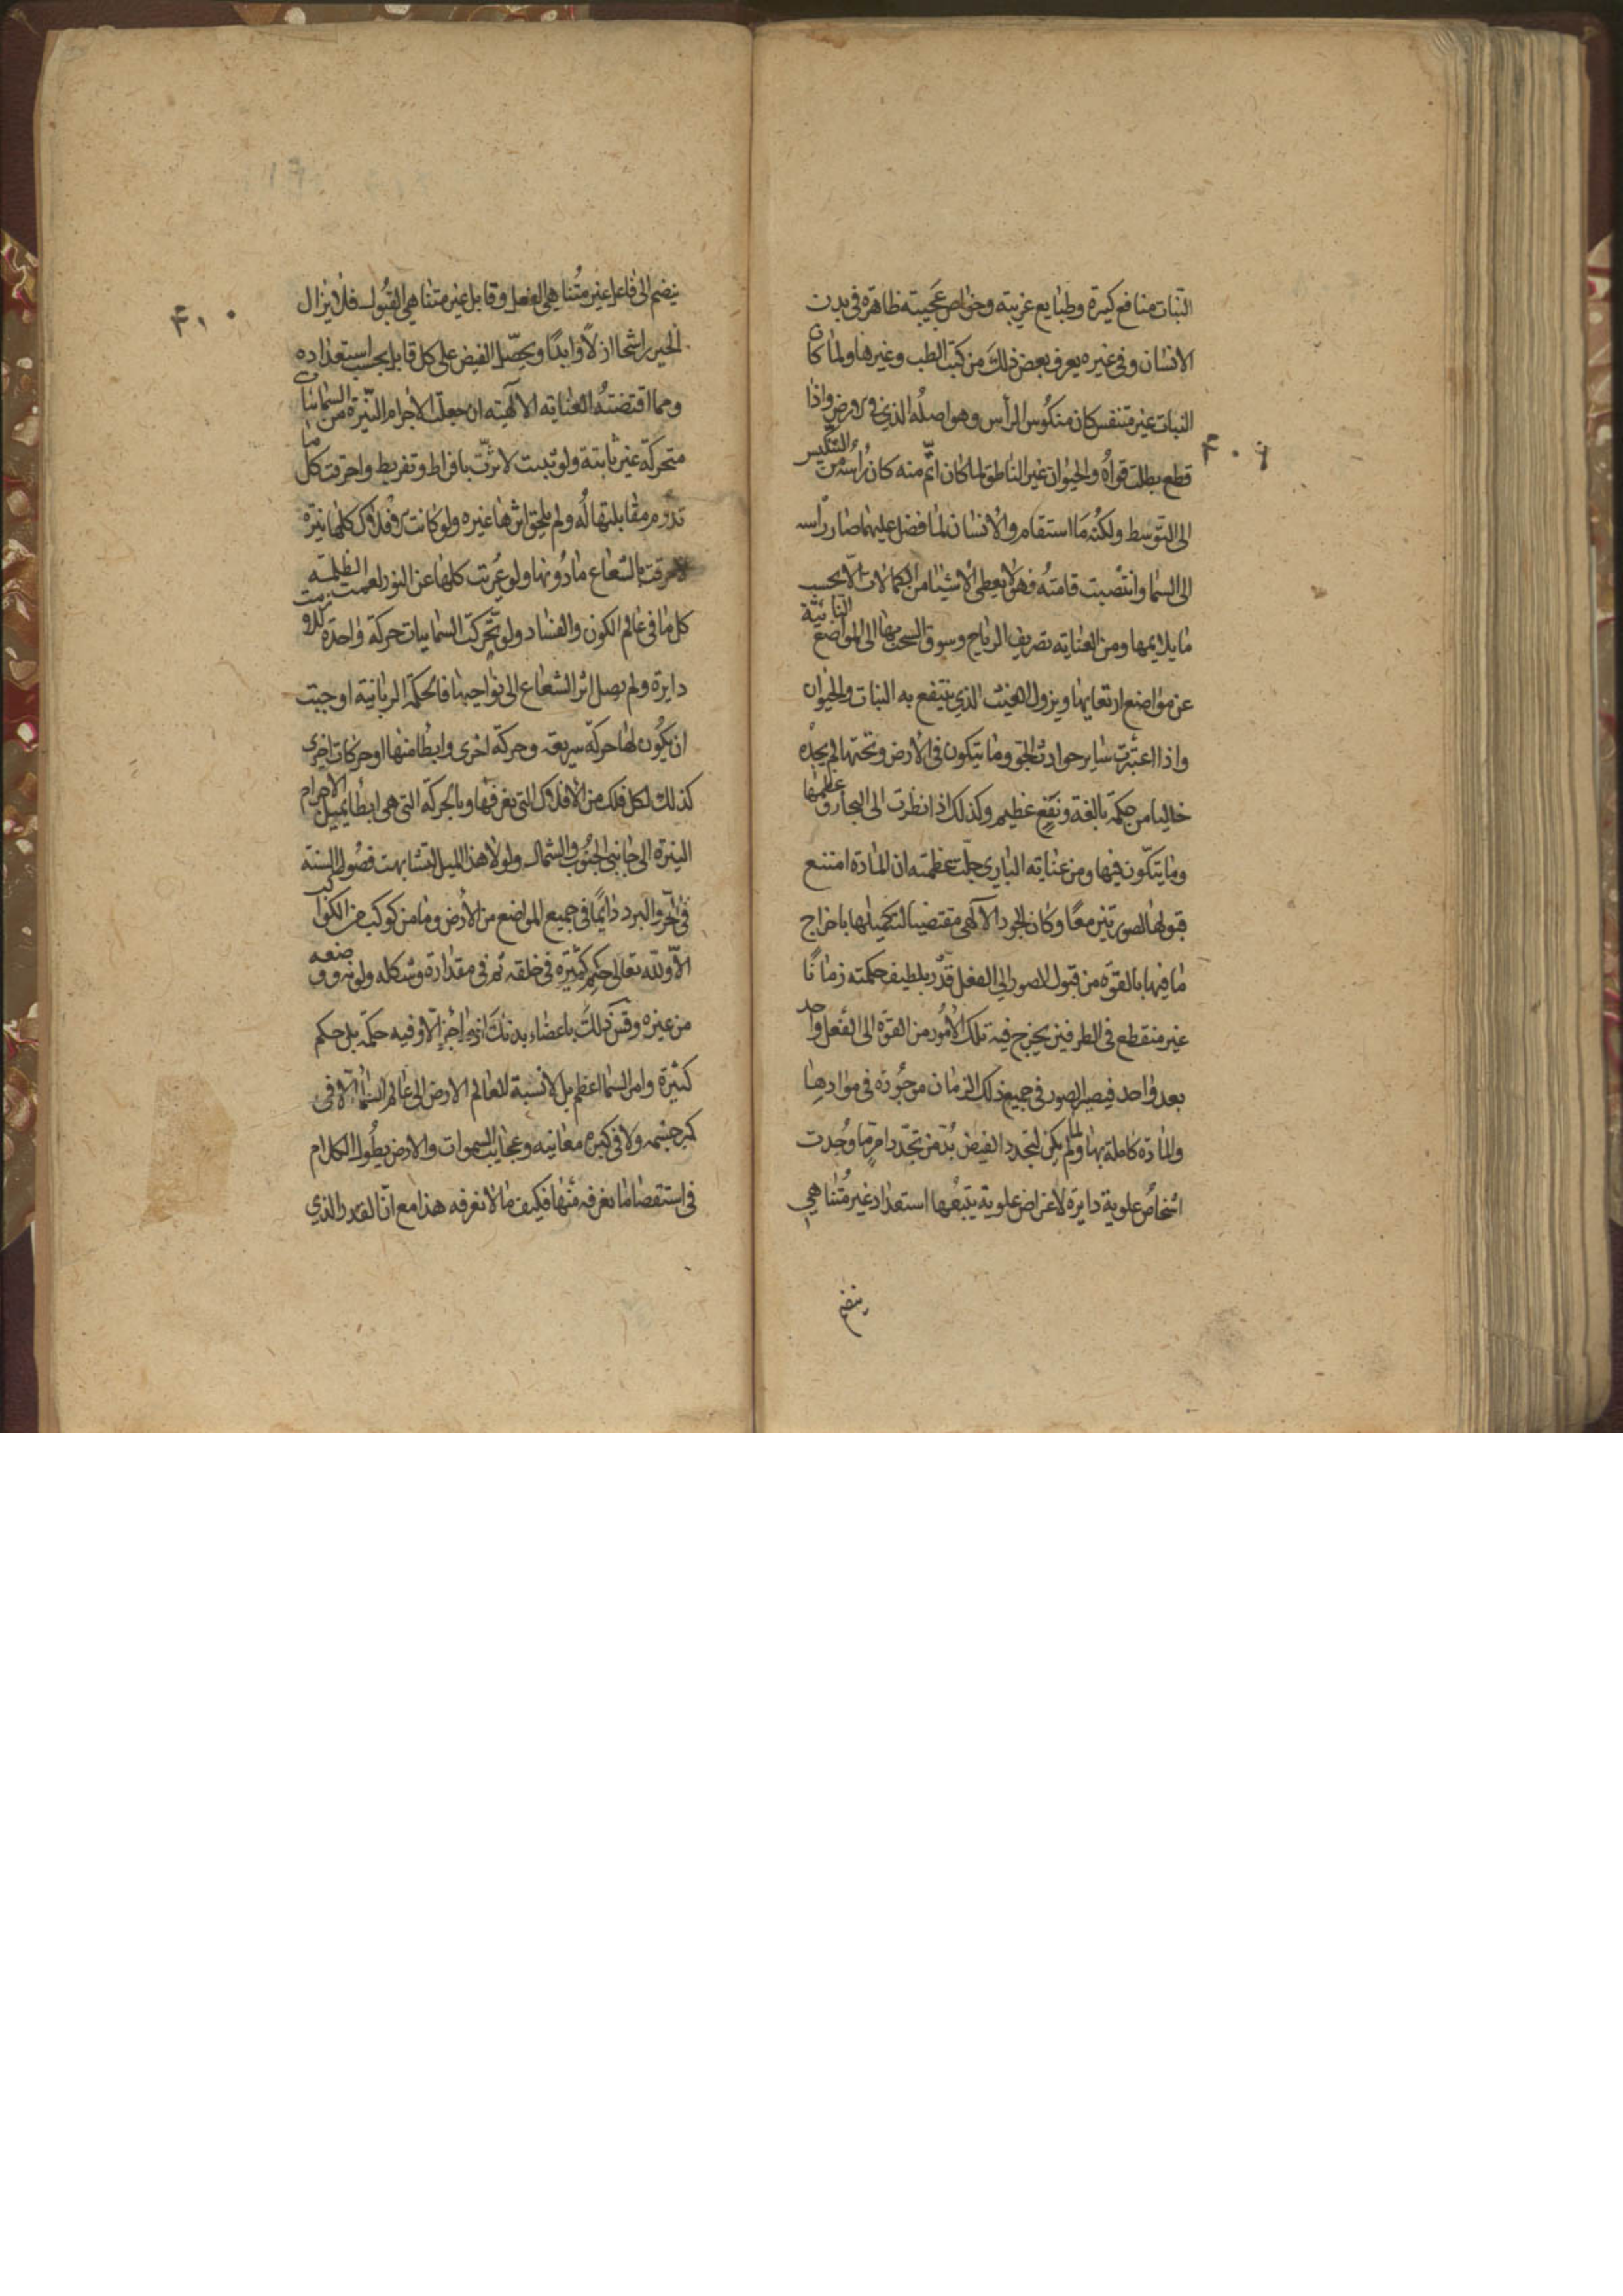 النبات منافع كثيرة وطبايع غريبة وخواص عجيبة ظاهرة في بدن
الانسان وفي غيره يعرف بعض ذلك من كتب الطب وغيرها ولما كان
النبات غير متنفس كان منكوس الرأس وهو اصله الذي في الارض واذا
قطع بطلت قواه والحيوان غير الناطق لما كان اتم منه كان رأسه من التنكيس
الى التوسط ولكنه ما استقام والانسان لما فضل عليهما صار رأسه
الى السما وانتصبت قامته فهو لا يعطي الاشيا من الكمالات الا بحسب
ما يلايمها ومن العناية تصريف الرياح وسوق السحب بها الى المواضع النائية
عن مواضع ارتفاعها ونزول الغيث الذي ينتفع به النبات والحيوان
واذا اعتبرت ساير حوادث الجو وما يتكون في الارض وتحتها لم يجده
خاليا من حكمة بالغة ونفع عظيم وكذلك اذا نظرت الى البحار وعظمها
وما يتكون فيها ومن عناية الباري جلت عظمته ان المادة امتنع
قبولها لصورتين معا وكان الجود الالهي مقتضيا لتكميلها باخراج
ما فيها بالقوة من قبول الصور الى الفعل قدر بلطيف حكمته زمانا
غير منقطع في الطرفين يخرج فيه تلك الامور من القوة الى الفعل واحد
بعد واحد فيصير الصور في جميع ذلك الزمان موجودة في موادها
والمادة كاملة بها ولما لم يكن لتجدد الفيض بد من تجدد امر ما وجدت
اشخاص علوية دايرة لاغراض علوية يتبعها استعداد غير متناهي
ينضم
٤٠٩
ينضم الى فاعل غير متناهي الفعل وقابل غير متناهي القبول فلا يزال
الخير راشحا ازلا وابدا ويحصل الفيض على كل قابل بحسب استعداده
ومما اقتضته العناية الالهية ان جعلت الاجرام النيرة من السمائيات
متحركة غير ثابتة ولو ثبتت لاثرت بافراط وتفريط واحترقت كل ما
تدوم مقابلتها له ولم يلحق اثرها غيره ولو كانت الافلاك كلها نيرة
لاحرقت بالشعاع ما دونها ولو عريت كلها عن النور لعمت الظلمة
كل ما في عالم الكون والفساد ولو تحركت السمائيات حركة واحدة للزمت
دايرة ولم يصل اثر الشعاع الى نواحيها فالحكمة الربانية اوجبت
ان يكون لها حركة سريعة وحركة اخرى وابطا منها او حركات اخرى
كذلك لكل فلك من الافلاك التي نعرفها وبالحركة التي هي ابطأ يميل الاجرام
النيرة الى جانبي الجنوب والشمال ولولا هذا الميل لتشابهت فصول السنة
في الحر والبرد دائما في جميع المواضع من الارض وما من كوكب من الكواكب
الا ولله تعالى حكم كثيرة في خلقه ثم في مقداره وشكله ولونه ووضعه
من غيره وقس ذلك باعضاء بدنك اذ ما جزء الا وفيه حكمة بل حكم
كثيرة وامر السما اعظم بل لا نسبة لعالم الارض الى عالم السماء لا في
كبر جسمه ولا في كثرة معانيه وعجايب السموات والارض يطول الكلام
في استقصا ما نعرفه منها فكيف ما لا نعرفه هذا مع ان القدر الذي
٤١٠